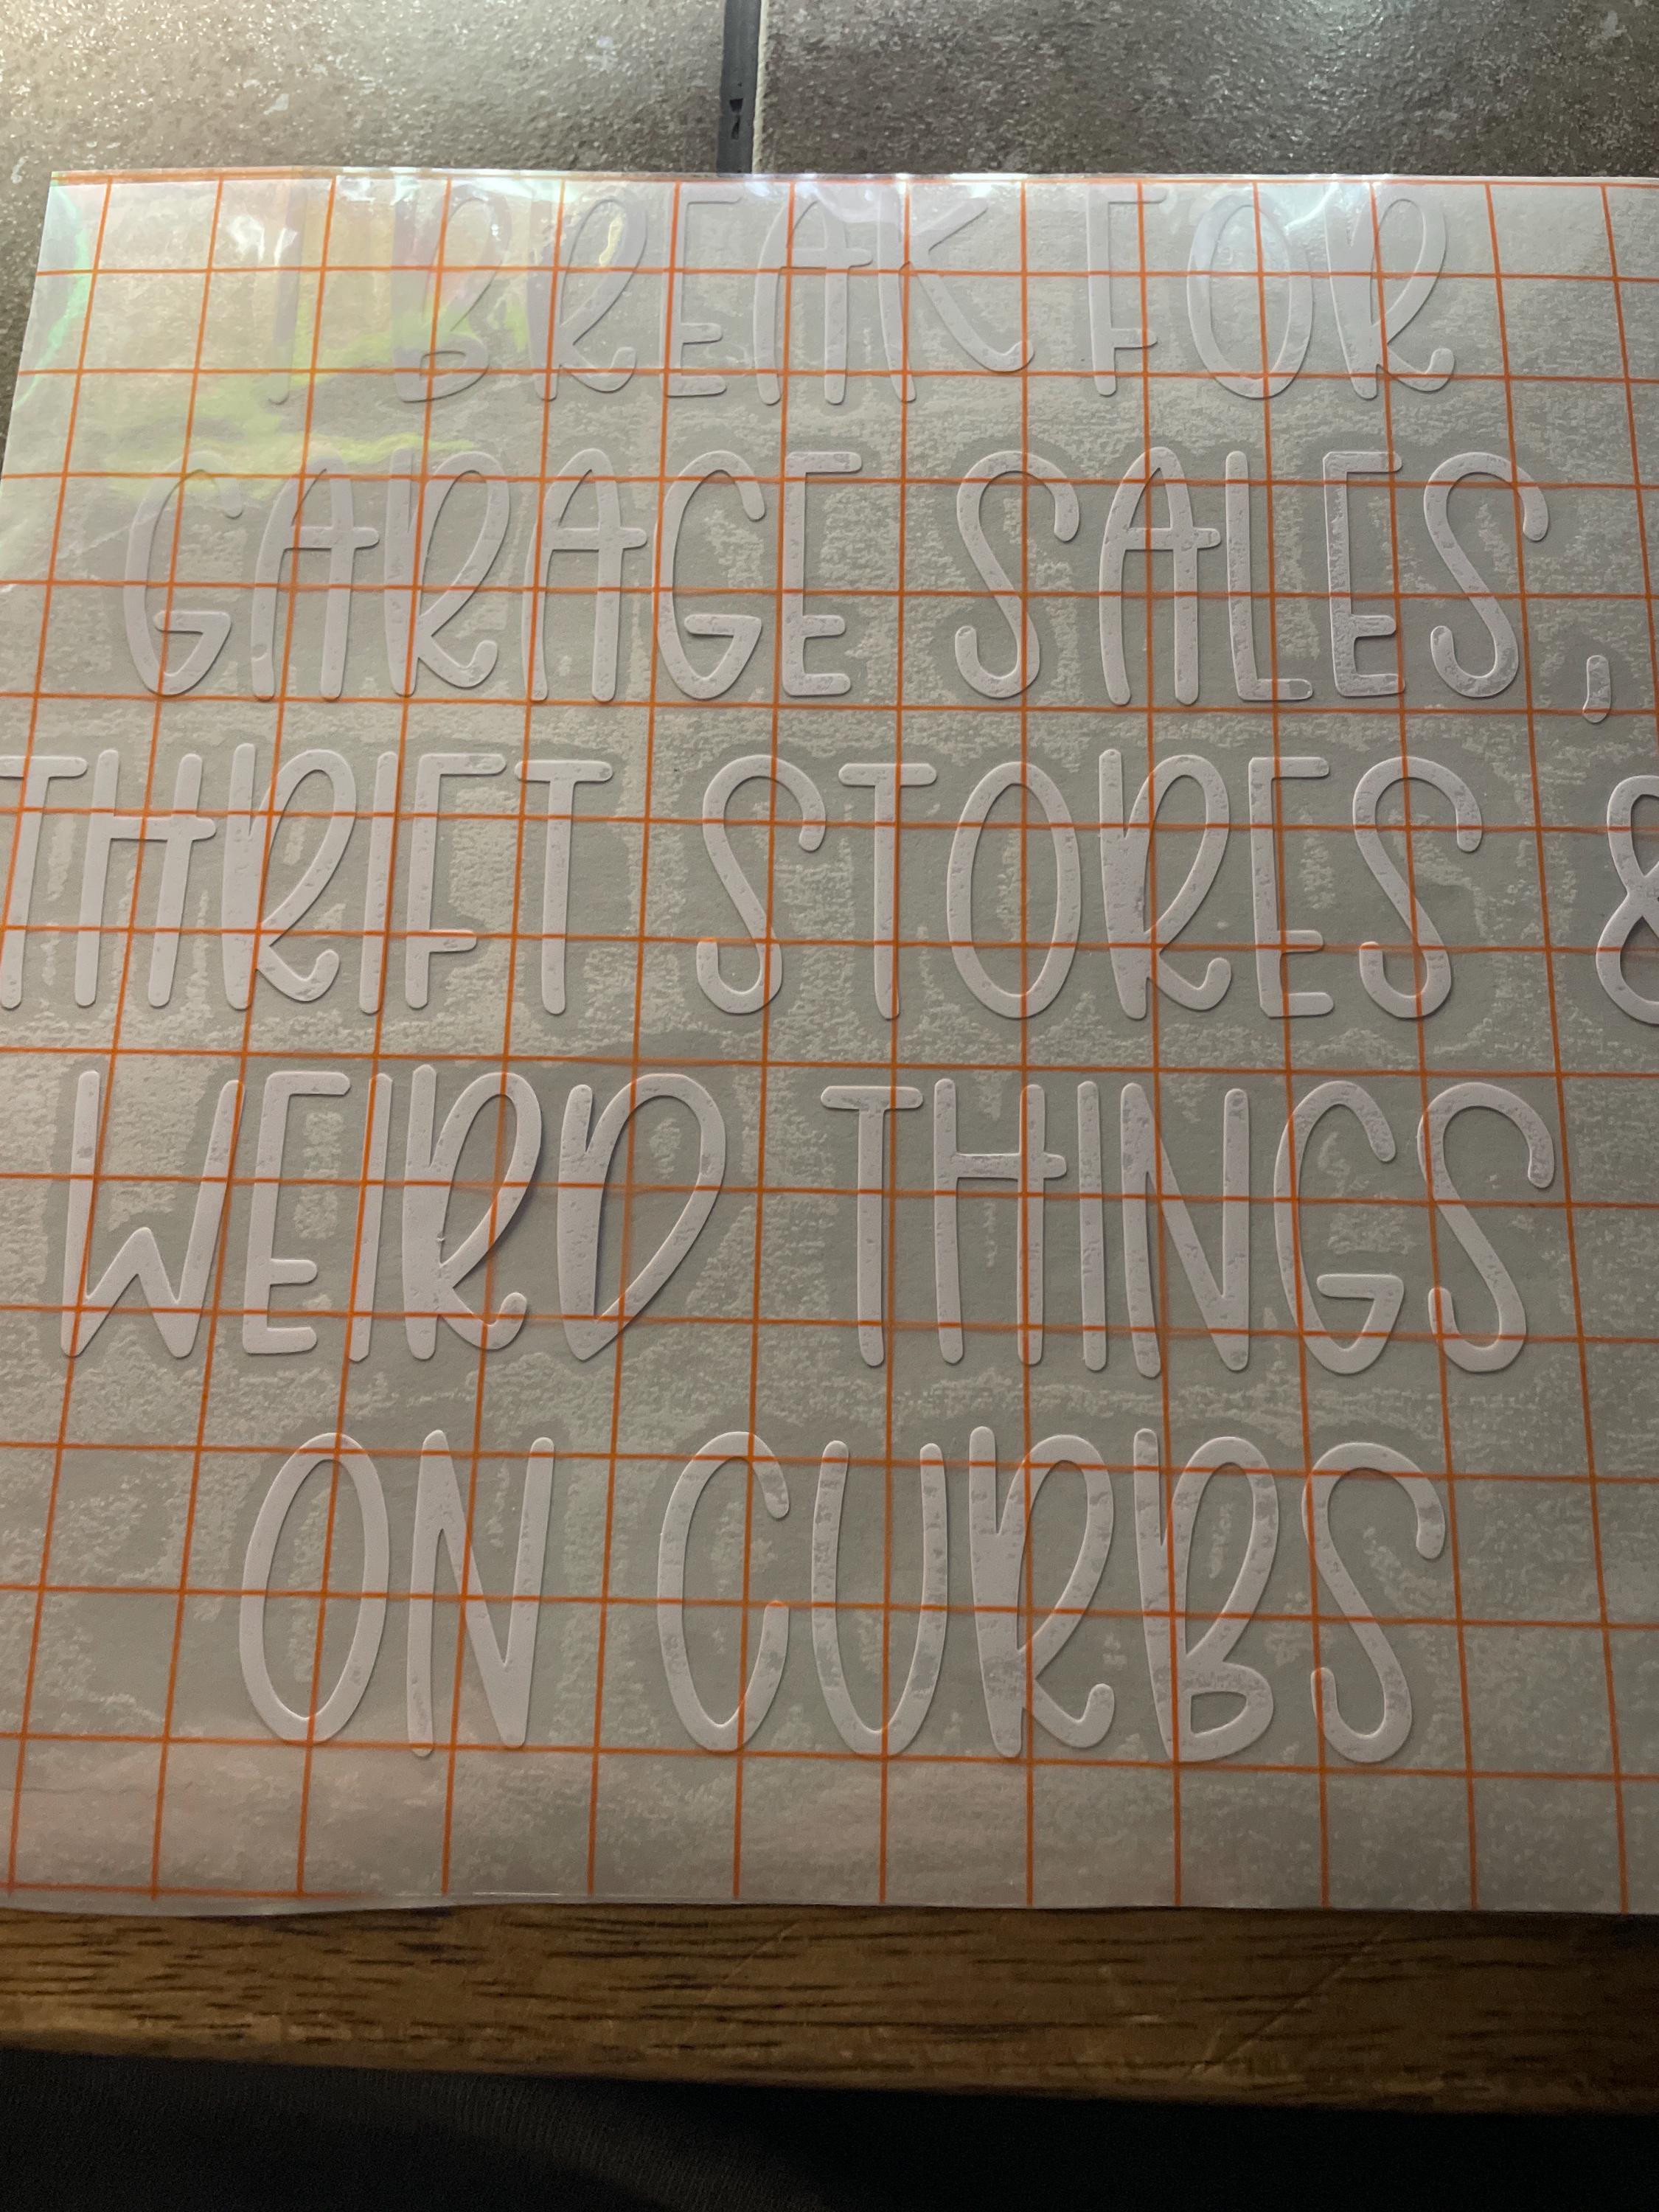 I BREAK FOR
GARAGE SALES,
THRIFT STORES &
WEIRD THINGS
ON CURBS